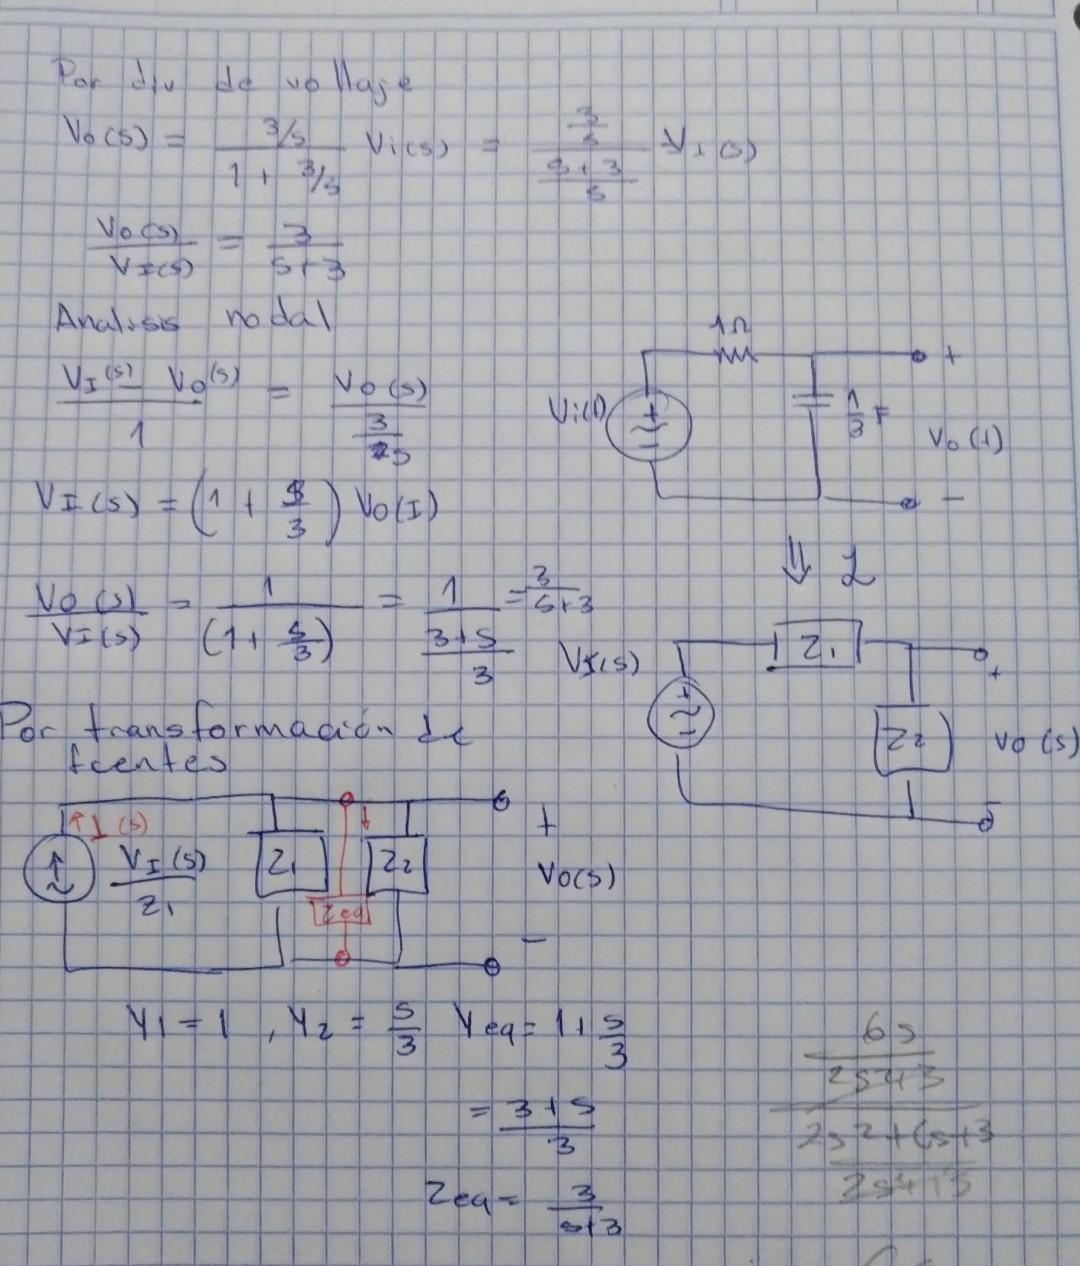 Por div de voltage
Vo(s) = (3/s)/(1 + 3/s) Vi(s) = (3/s)/((s+3)/s) VI(s)
Vo(s)/VI(s) = 3/(s+3)
Analisis nodal
(VI(s) - Vo(s))/1 = Vo(s)/(3/s)
VI(s) = (1 + s/3) Vo(I)
Vo(s)/VI(s) = 1/(1 + s/3) = 1/((3+s)/3) = 3/(s+3)
1Ω
Vi(t)
+
-
1/3 F
+
Vo(t)
-
⇓ L
VI(s)
+
-
Z1
Z2
+
Vo(s)
-
Por transformación de
fcentes
↑I(s)
VI(s)/Z1
Z1
Zeq
Z2
+
Vo(s)
-
Y1 = 1 , Y2 = s/3 Yeq = 1 + s/3
= (3+s)/3
Zeq = 3/(s+3)
6s